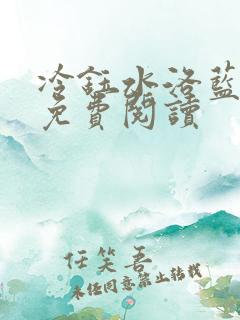 冷鈺水洛藍
免費閱讀
任笑吾
未經同意禁止轉載